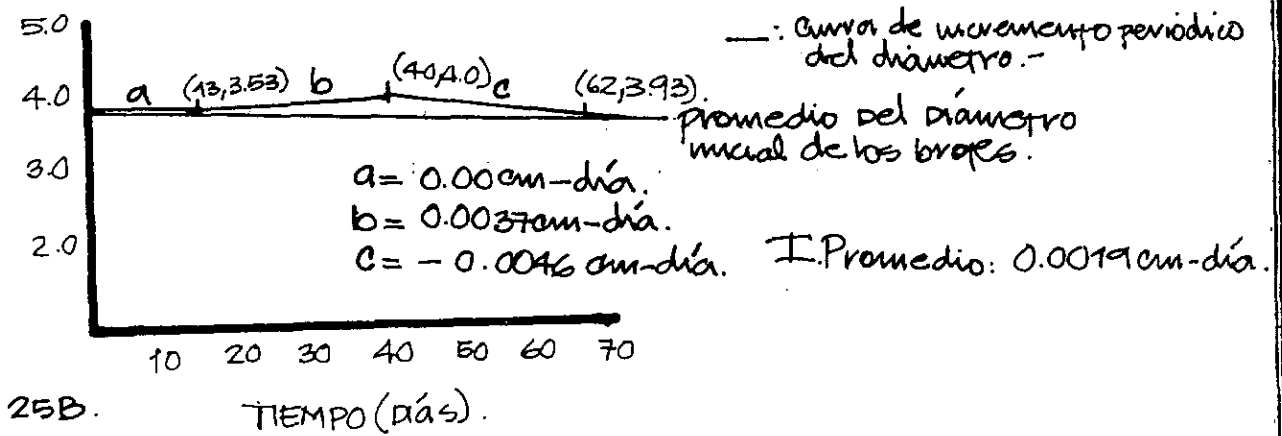 5.0
4.0
3.0
2.0
—: curva de incremento periódico
del diámetro.-
a (13,3.53) b (40,4.0) c (62,3.93).
promedio Del Diámetro
inicial de los brotes.
a= 0.00 cm-día.
b= 0.0037 cm-día.
c= - 0.0046 cm-día. I.Promedio: 0.0019 cm-día.
10 20 30 40 50 60 70
25B. TIEMPO (DíáS).